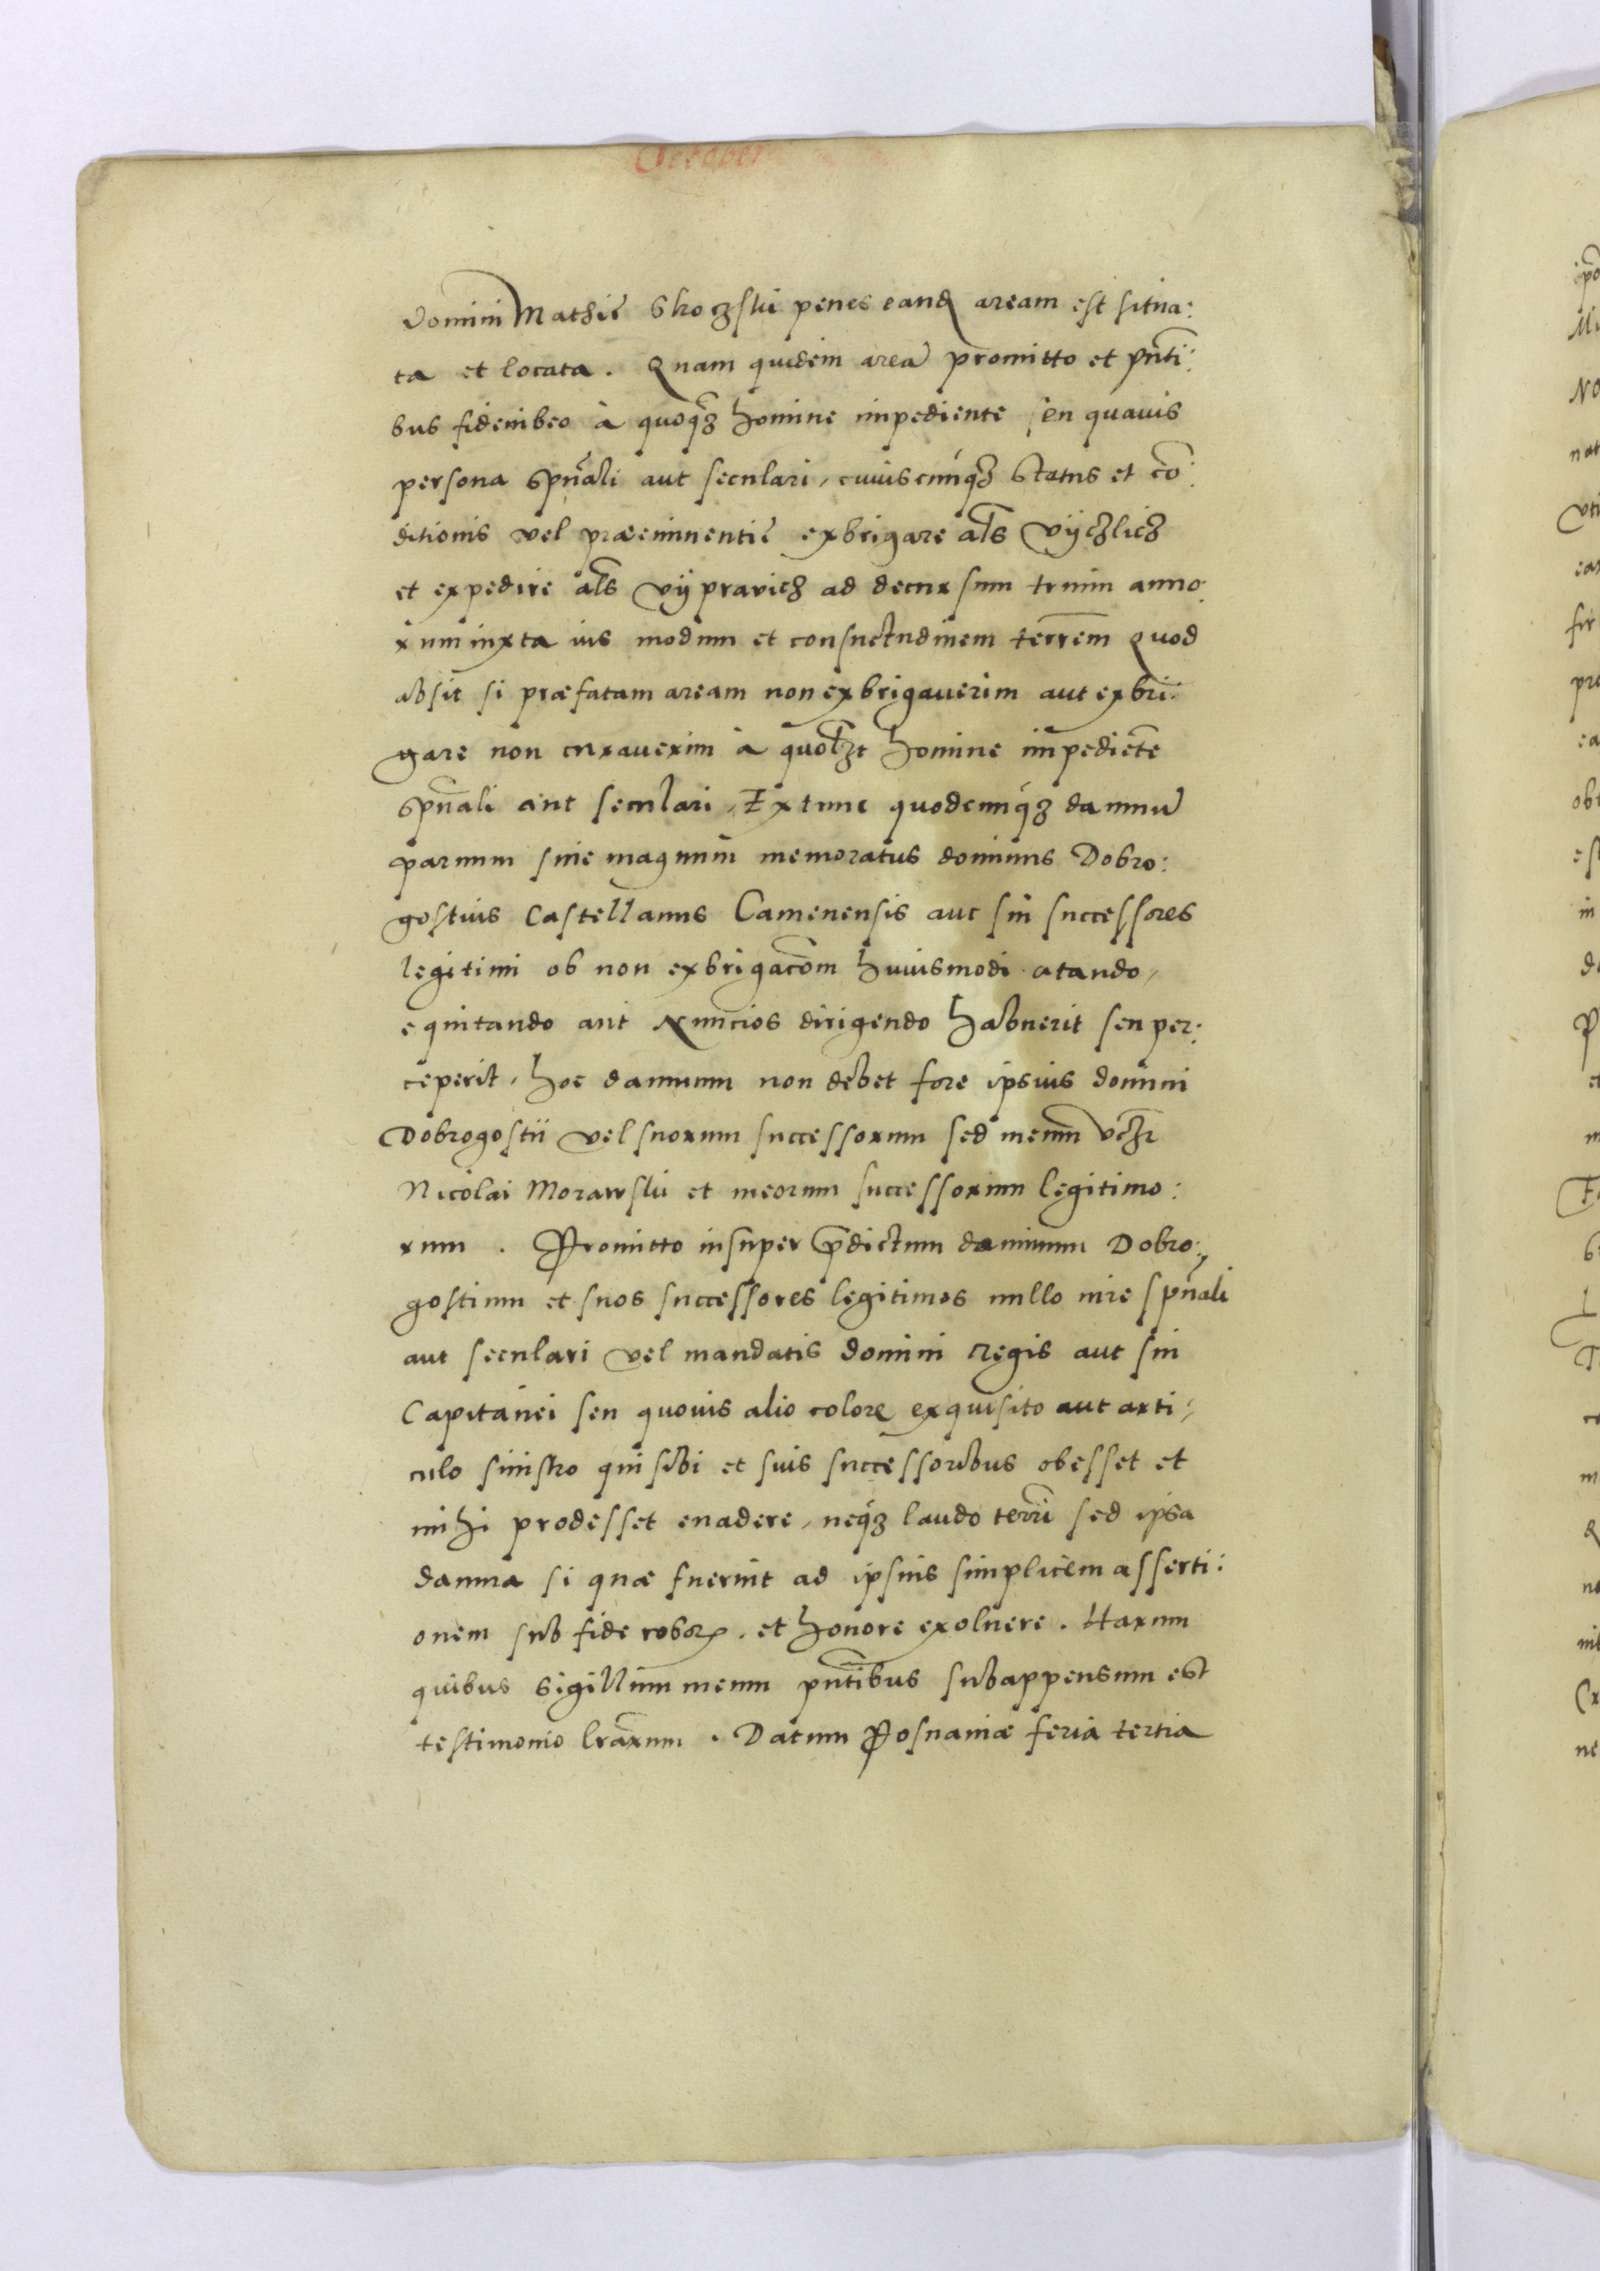 domini Mathię Skoczski penes eandē aream est situa:
ta et locata. Quam quidem areā promitto et pn̄ti:
bus fideiubeo à quoqz homine impediente seu quauis
persona spūali aut seculari, cuiuscunqz status et cō:
ditionis vel præeminentię exbrigare al̄s vÿczlicz
et expedire al̄s vÿprawicz ad decursum trium anno:
rum iuxta ius modum et consuetudinem terrēm Quod
absit si præfatam aream non exbrigauerim aut exbri:
gare non curauerim à quol̄zt homine impediēte
spūali aut seculari, Extunc quodcunqz damnū
paruum siue magnum memoratus dominus Dobro:
gostius Castellanus Camenensis aut sui successores
legitimi ob non exbrigacōm huiusmodi citando,
equitando aut Nuncios dirigendo habuerit seu per:
ceperit, hoc damnum non debet fore ipsius domini
Dobrogostii vel suorum successorum sed meum vcz̄
Nicolai Morawski et meorum successorum legitimo:
rum. Promitto insuper p̄dictum dominum Dobro:
gostium et suos successores legitimos nullo iure spūali
aut seculari vel mandatis domini Regis aut sui
Capitanei seu quouis alio colore exquisito aut arti:
culo sinistro qui sibi et suis successoribus obesset et
mihi prodesset euadere, neqz laudo terrī sed ipsa
damna si quæ fuerint ad ipsius simplicem asserti:
onem sub fide robor. et honore exoluere. Harum
quibus sigillum meum pn̄tibus subappensum est
testimonio lr̄arum. Datum Posnaniæ feria tertia